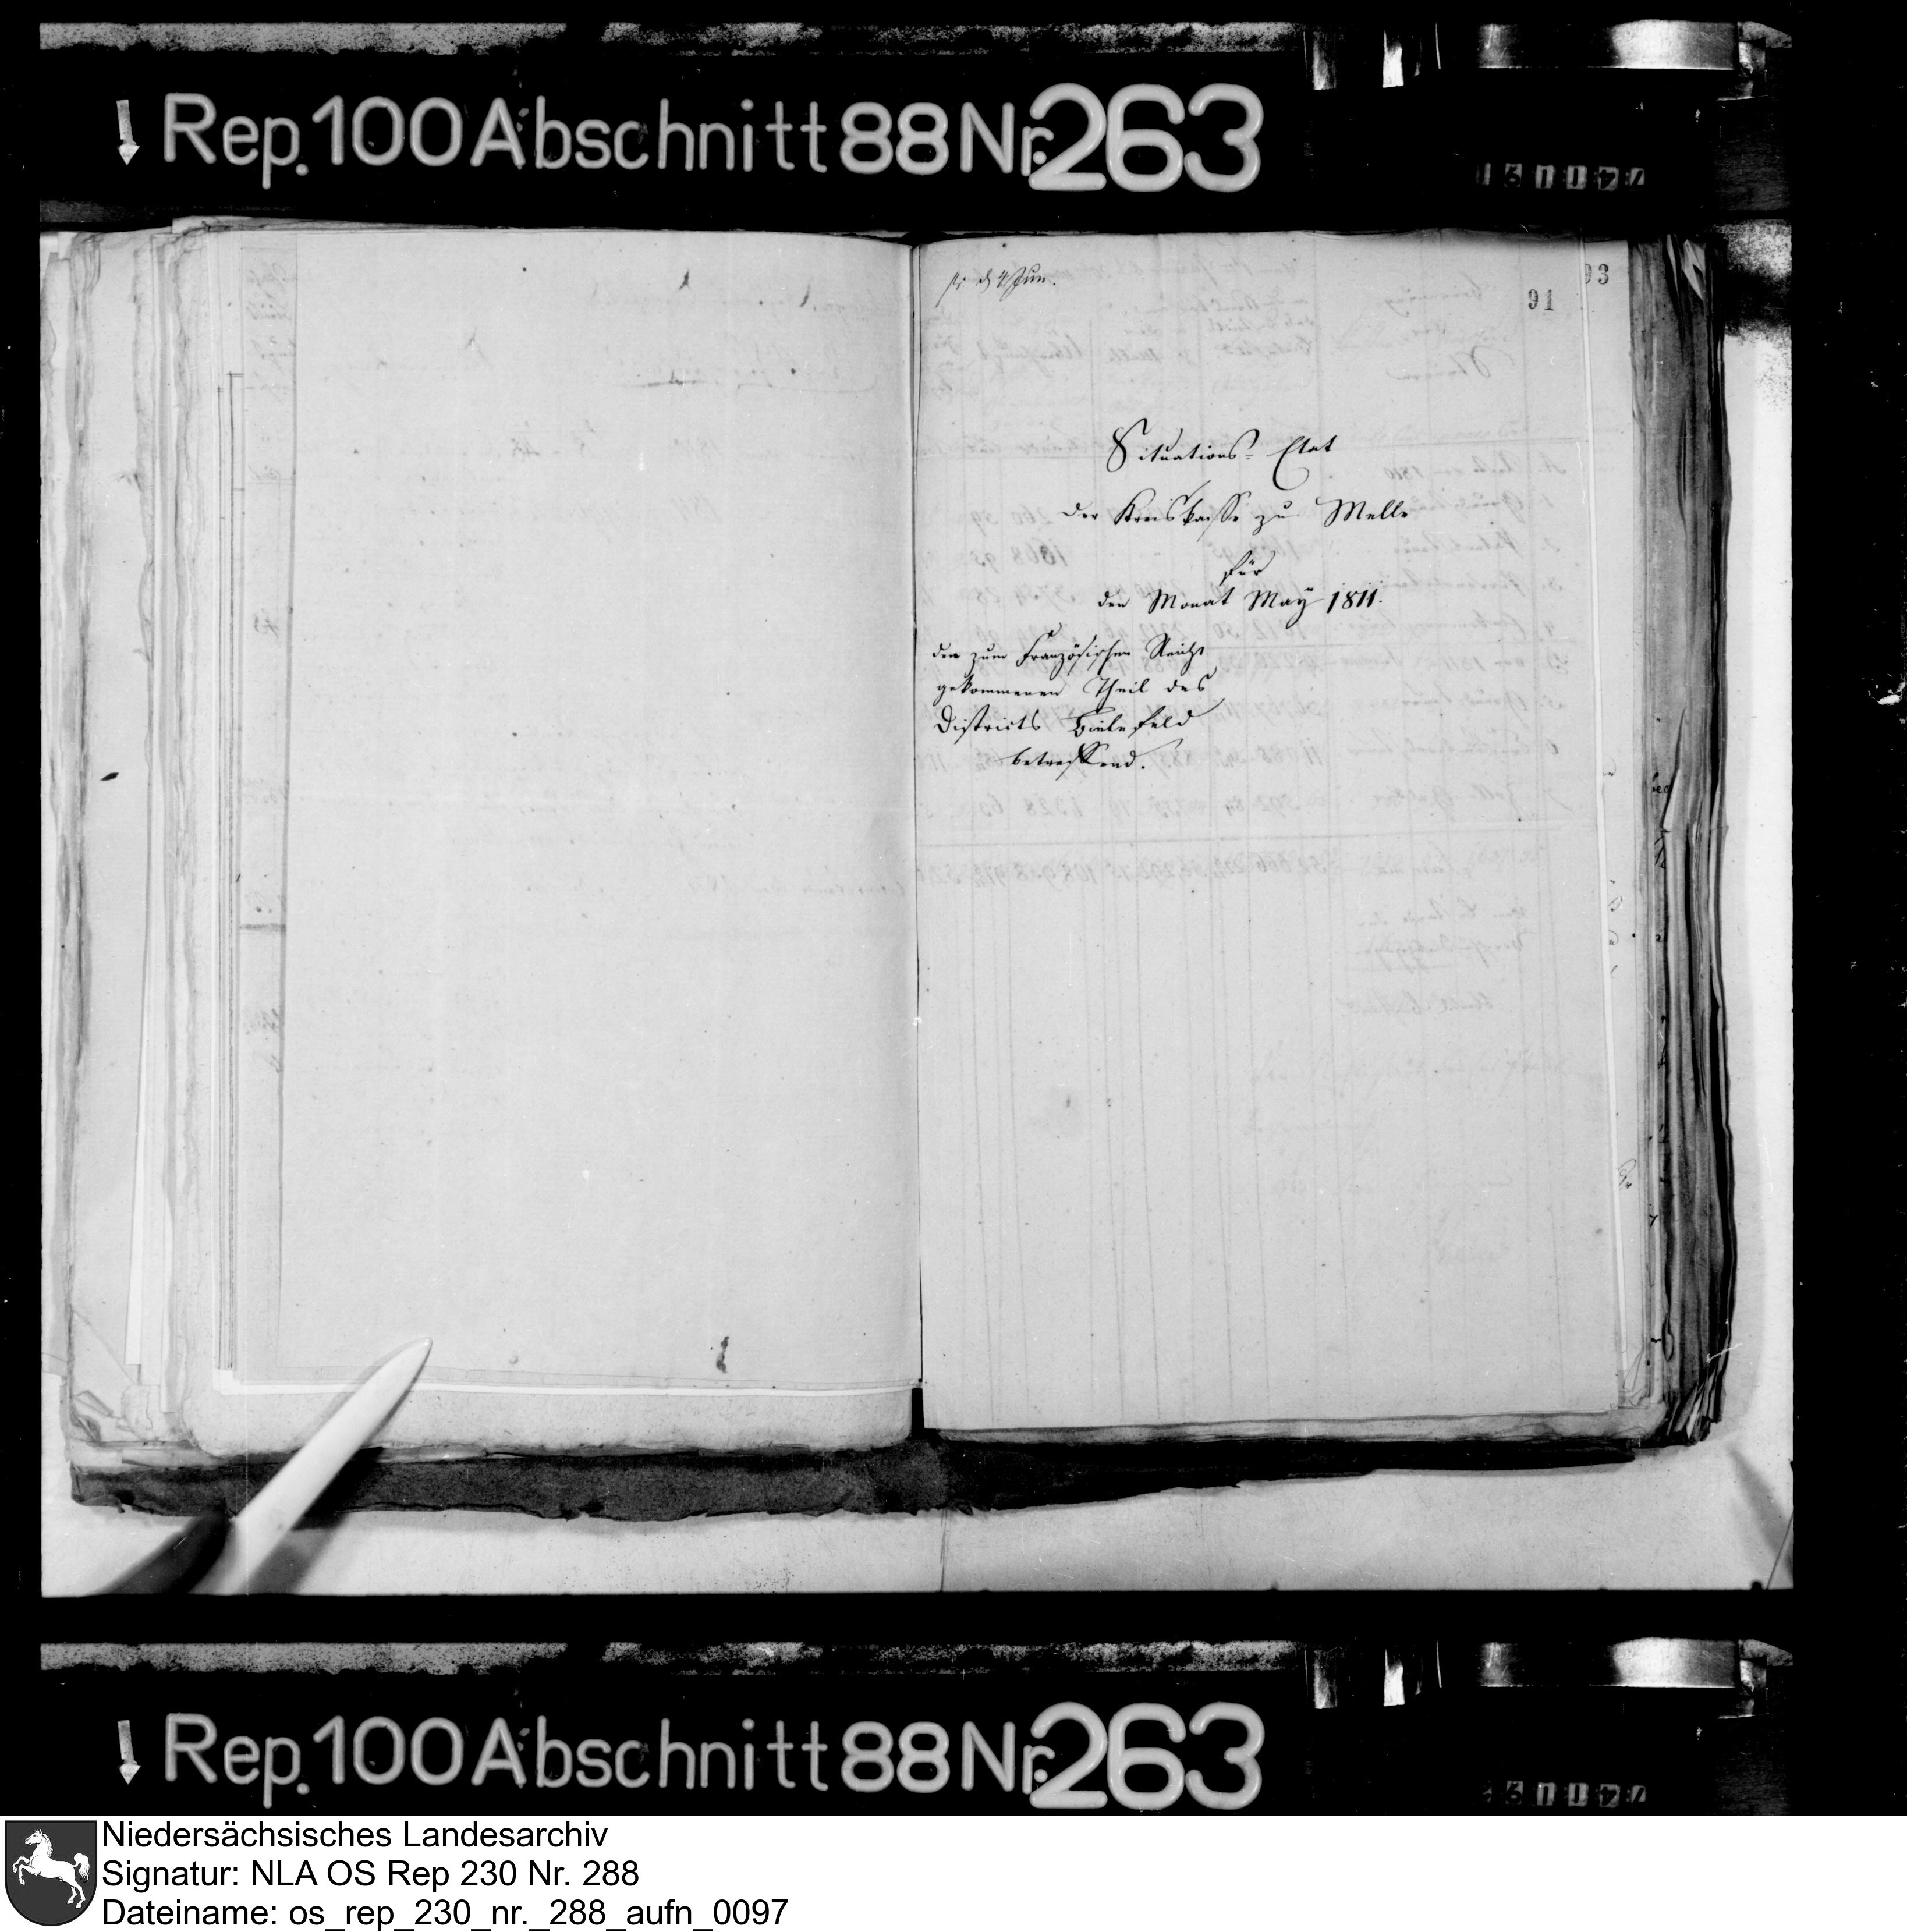 Rep. 100 Abschnitt 88 Nr. 263
pr. d 4 Jun.
93
91
Situations- Etat
der Kreiskasse zu Melle
für
den Monat May 1811.
den zum Französischen Reiche
gekommenen Theil des
Districts Bielefeld
betreffend.
Rep. 100 Abschnitt 88 Nr. 263
Niedersächsisches Landesarchiv
Signatur: NLA OS Rep 230 Nr. 288
Dateiname: os_rep_230_nr._288_aufn_0097